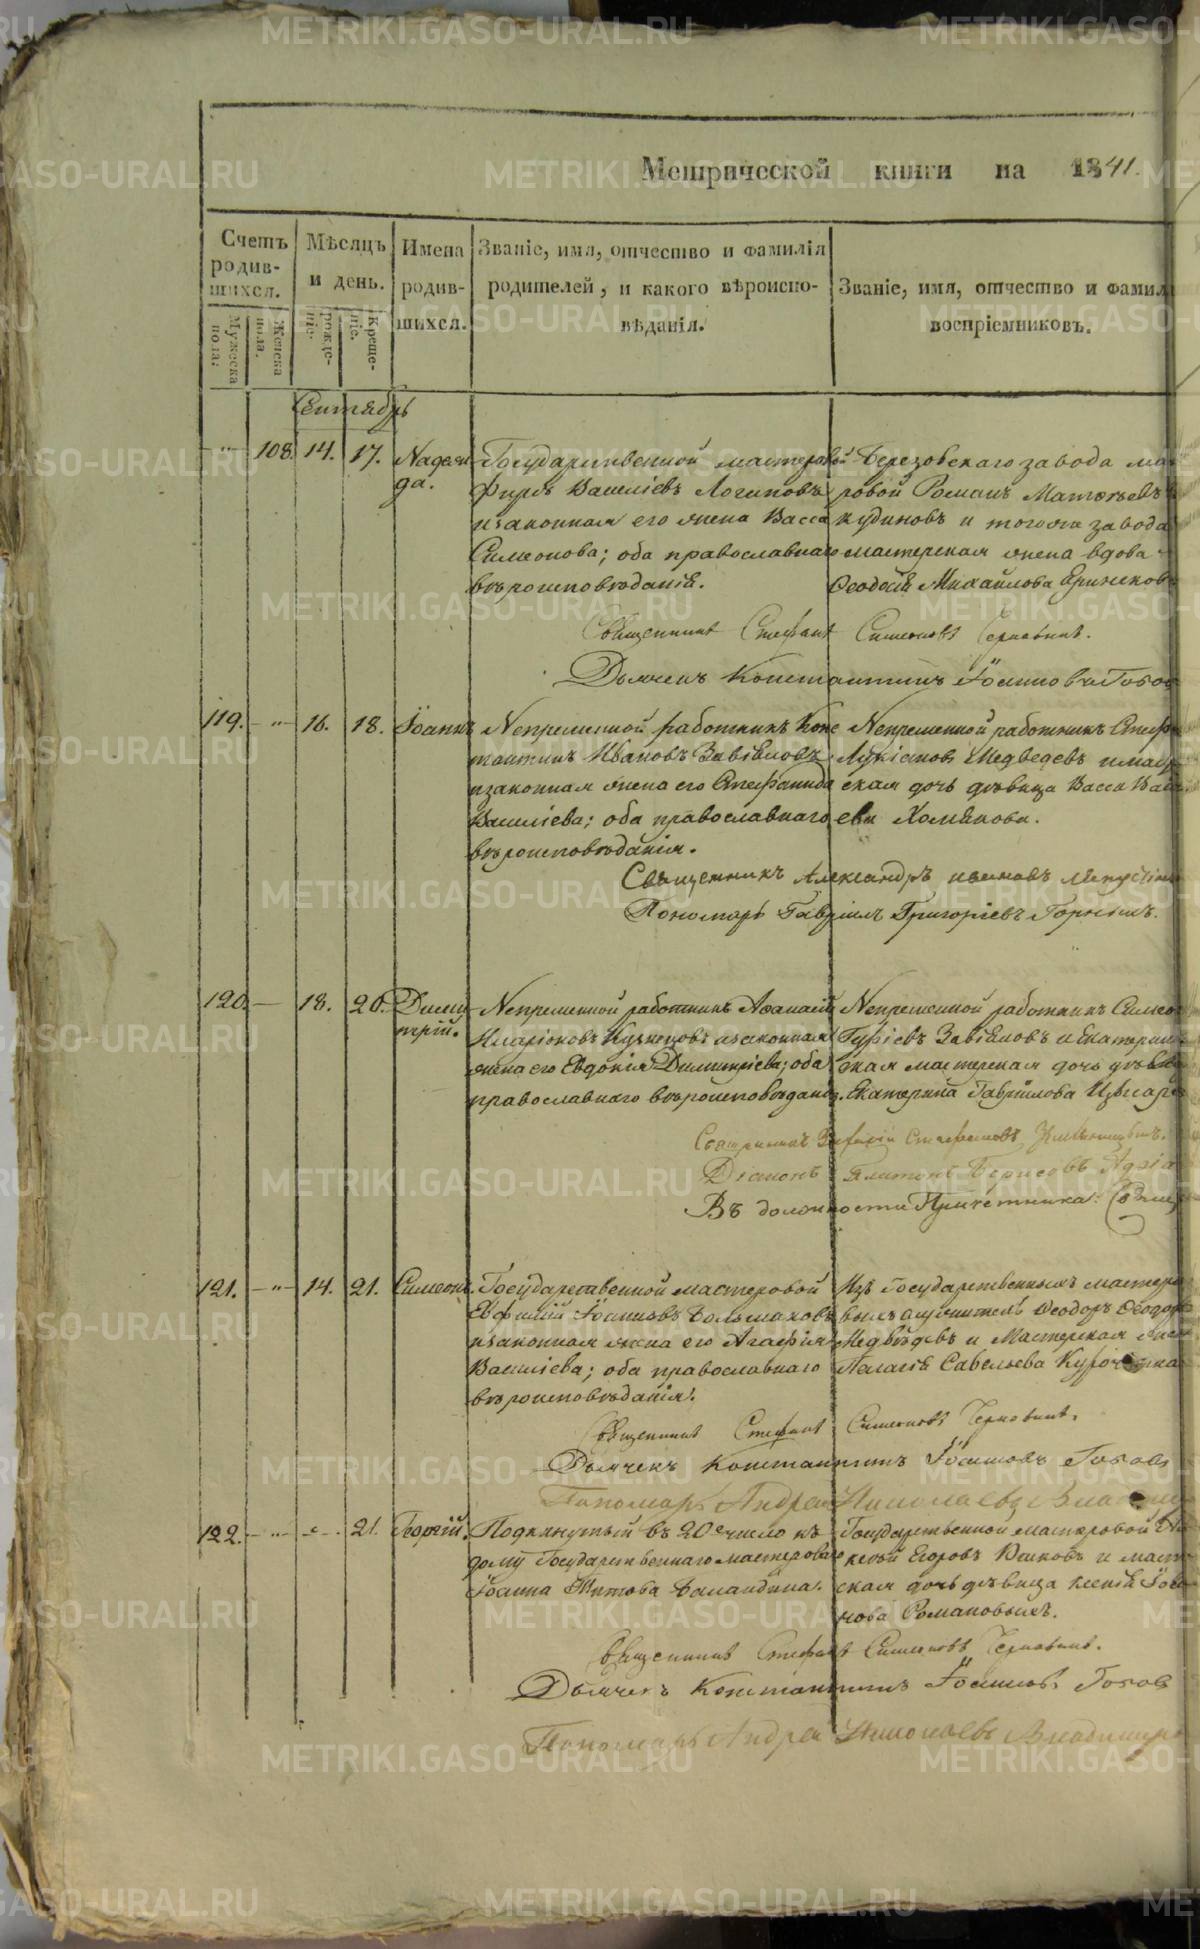 Метрической книги на 1841.
Счетъ родившихся.
Мѣсяцъ и день.
Имена родившихся.
Званіе, имя, отчество и фамилія родителей, и какого вѣроиспо-
вѣданія.
Званіе, имя, отчество и фамил
воспріемниковъ.
Мужеска пола.
Женска пола.
рожде-
ніе.
Креще-
ніе.
Сентябрь
" 108. 14. 17. Надеж
да.
Государственной мастеровой
Василіевъ Логиновъ
и законная его жена Васса
Симеонова; оба православнаго
вѣроисповѣданія.
Березовскаго завода ма
ровой Романъ Матвѣевъ
кудиновъ и тогоже завода
мастерская жена вдова
Ѳеодосія Михайлова
Священникъ Стефанъ Симеоновъ Черновинъ.
Дьячекъ Константинъ Іоанновъ
119. " 16. 18. Іоаннъ
Непременной работникъ Конс
тантинъ Ивановъ Завьяловъ
и законная жена его Стефанида
Василіева; оба православнаго
вѣроисповѣданія.
Непременной работникъ Стеф
Лукіановъ Медведевъ и маст
ская дочь дѣвица Васса Васи
ева Хомякова.
Священникъ Александръ
Пономарь Гавріилъ Григоріевъ Горныхъ.
120. — 18. 20. Дими
трій.
Непременной работникъ Аѳанасій
Иларіоновъ Кузнецовъ и законная
жена его Евдокія Димитріева; оба
православнаго вѣроисповѣданія.
Непременной работникъ Симео
Гуріевъ Завьяловъ и Екатерин
ская мастерская дочь дѣвица
Екатерина Гавріилова
Священникъ Стефановъ
Діаконъ Платонъ Борисовъ
Въ должности Причетника
121. " 14. 21. Симеонъ.
Государственной мастеровой
Евфимій Іоанновъ Большаковъ
и законная жена его Агафія
Василіева; оба православнаго
вѣроисповѣданія.
Изъ государственныхъ мастеро
выхъ Ѳеодоръ Ѳеодоро
Медвѣдевъ и Мастерская жена
Пелагія Савельева Курочкина
Священникъ Стефанъ Симеоновъ Черновинъ.
Дьячекъ Константинъ Іоанновъ
Пономарь Андрей Николаевъ
122. " " 21. Георгій.
Подкинутый въ 20е число къ
дому Государственнаго мастероваго
Іоанна Титова Баландина.
Государственной мастеровой
Егоровъ и маст
ская дочь дѣвица Ксенія Іоан
нова Романовыхъ.
Священникъ Стефанъ Симеоновъ Черновинъ.
Дьячекъ Константинъ Іоанновъ
Пономарь Андрей Николаевъ Владимиро
METRIKI.GASO-URAL.RU